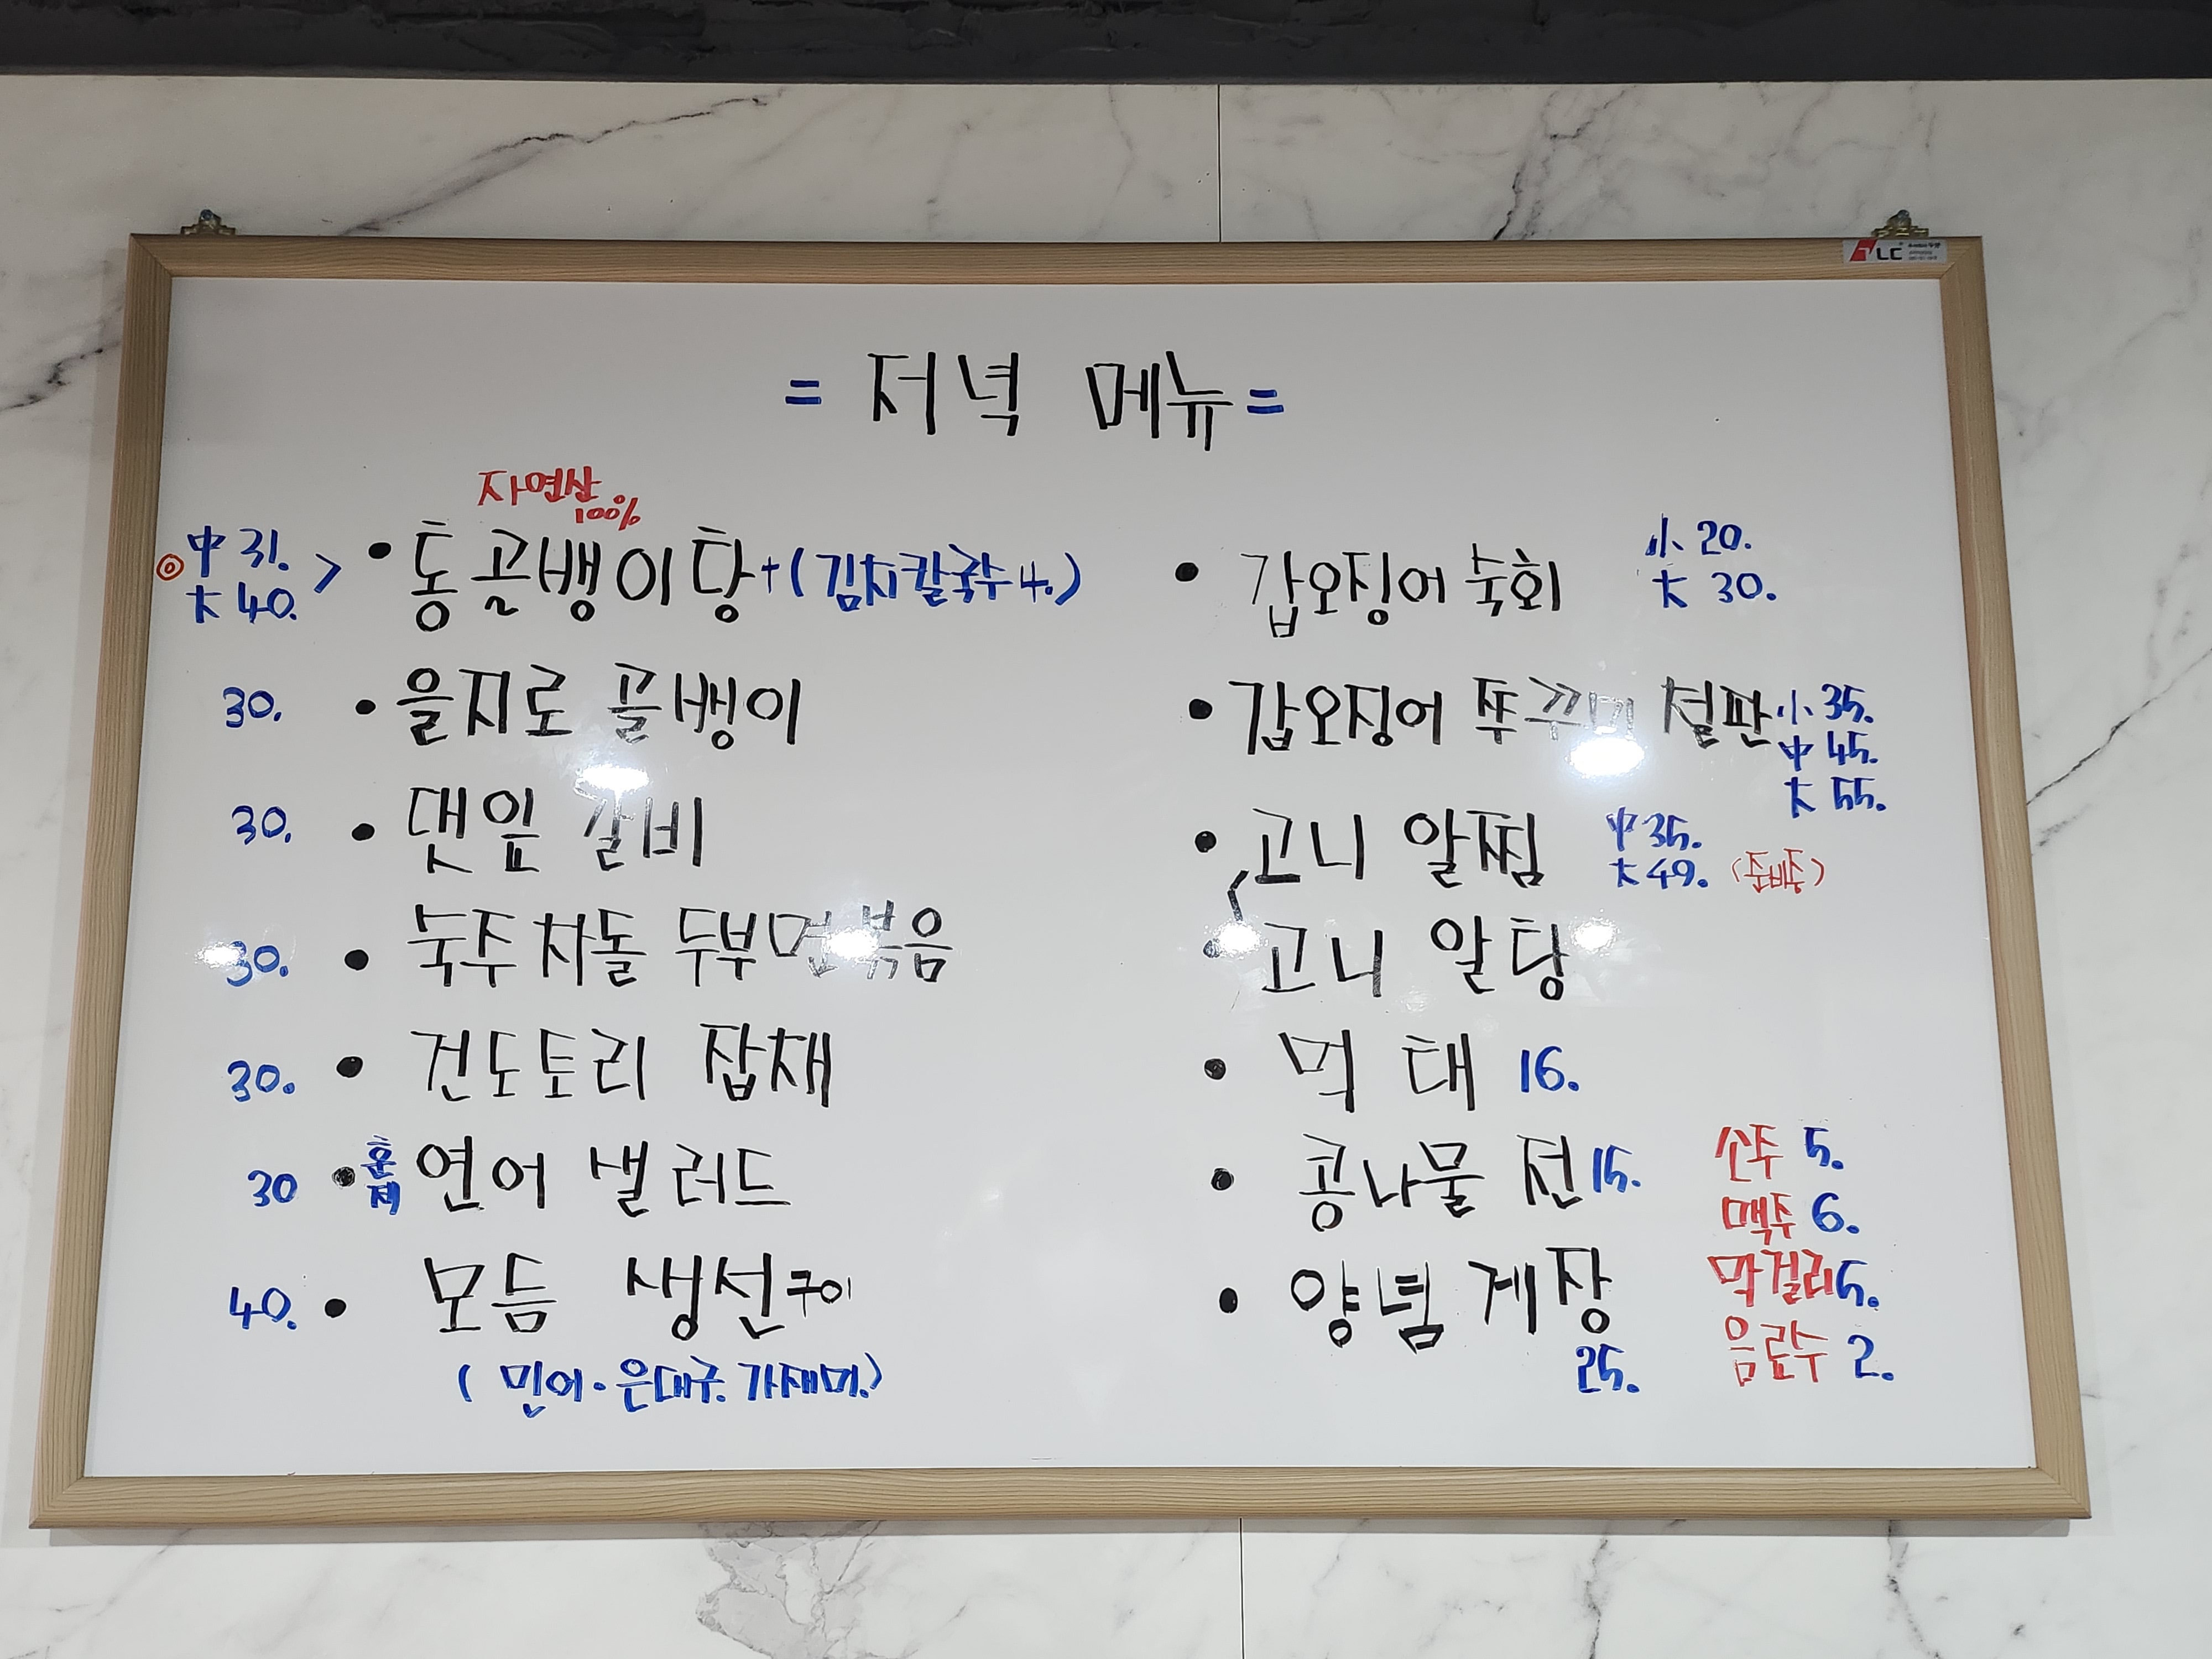 = 저녁 메뉴 =
자연산
100%
中 31.
大 40.
> • 통골뱅이탕 + (김치칼국수 4.)
30. • 을지로 골뱅이
30. • 댓잎 갈비
30. • 숙주차돌 두부면볶음
30. • 건도토리 잡채
30 • 훈제 연어 샐러드
40. • 모듬 생선구이
(민어·은대구. 가재미.)
• 갑오징어 숙회
小 20.
大 30.
• 갑오징어 쭈꾸미 철판
小 35.
中 45.
大 55.
• 고니 알찜
中 35.
大 49.
• 고니 알탕
• 먹태 16.
• 콩나물 전 15.
• 양념 게장
25.
소주 5.
맥주 6.
막걸리 5.
음료수 2.
LC